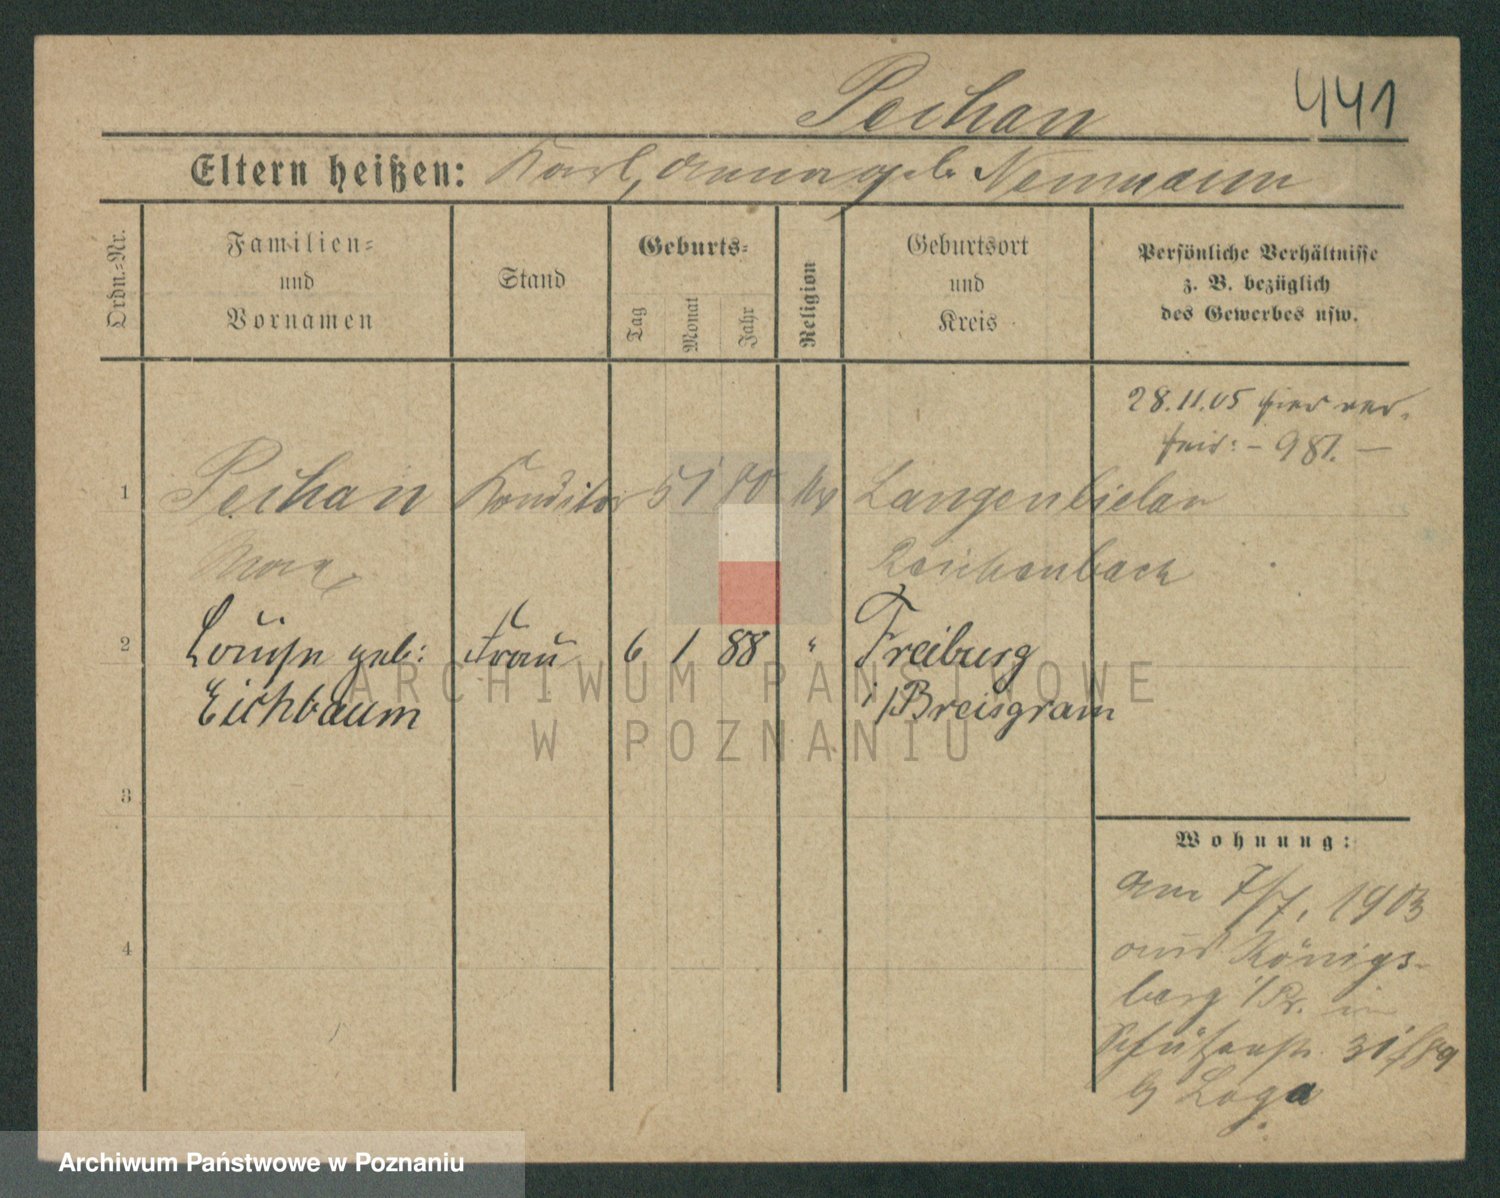 Peihan 441
Eltern heißen: Karl, Anna geb. Neumann
Ordn.-Nr.
Familien-
und
Vornamen
Stand
Geburts-
Tag
Monat
Jahr
Religion
Geburtsort
und
Kreis
Persönliche Verhältnisse
z. B. bezüglich
des Gewerbes usw.
28.11.05 hier ver-
heir: - 981. -
1 Peihan Konditor 5 1 80 Langenbielau
Max Reichenbach
2 Louise geb: Frau 6 1 88 " Freiburg
Eichbaum i/Breisgram
3
4
Wohnung:
am 7/7. 1903
aus Königs-
berg i/Pr. in
Schützenstr. 31
b/ Loga
ARCHIWUM PAŃSTWOWE
W POZNANIU
Archiwum Państwowe w Poznaniu